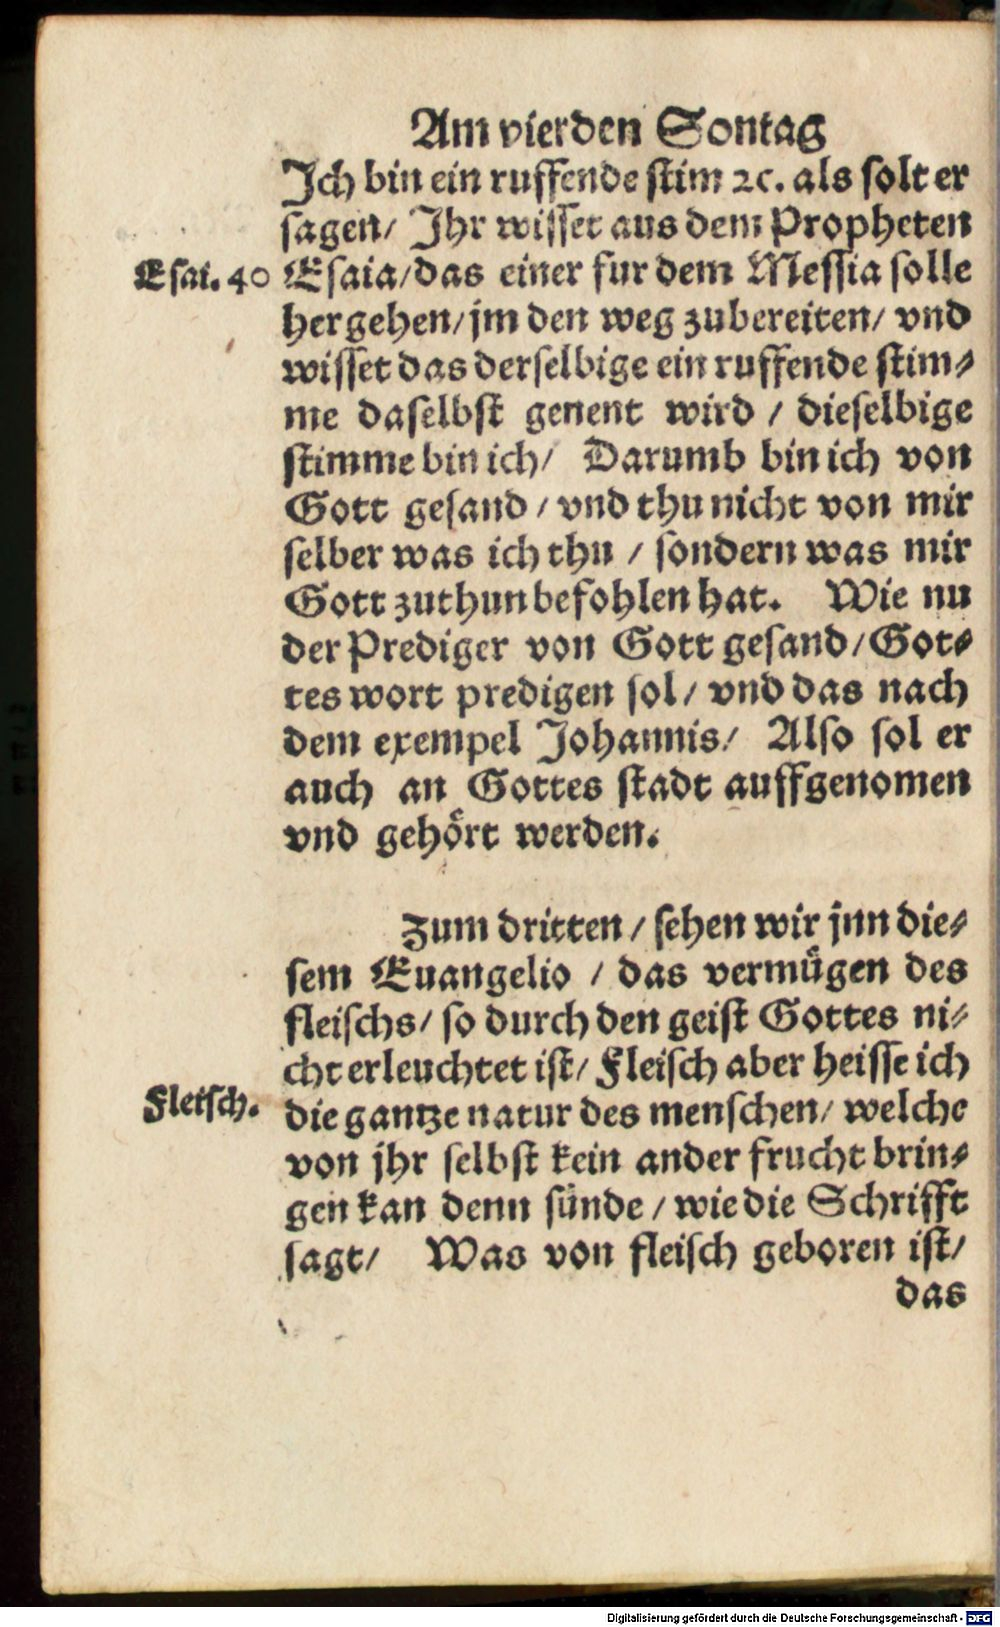 Am vierden Sontag
Ich bin ein ruffende stim ꝛc. als solt er
sagen/ Ihr wisset aus dem Propheten
Esai. 40 Esaia/das einer fur dem Messia solle
her gehen/jm den weg zubereiten/ vnd
wisset das derselbige ein ruffende stim⸗
me daselbst genent wird / dieselbige
stimme bin ich/ Darumb bin ich von
Gott gesand / vnd thu nicht von mir
selber was ich thu / sondern was mir
Gott zuthun befohlen hat. Wie nu
der Prediger von Gott gesand/Got⸗
tes wort predigen sol/ vnd das nach
dem exempel Johannis/ Also sol er
auch an Gottes stadt auffgenomen
vnd gehoͤrt werden.
Zum dritten / sehen wir jnn die⸗
sem Euangelio / das vermuͤgen des
fleischs/ so durch den geist Gottes ni⸗
cht erleuchtet ist/ Fleisch aber heisse ich
Fleisch. die gantze natur des menschen/ welche
von jhr selbst kein ander frucht brin⸗
gen kan denn sünde / wie die Schrifft
sagt/ Was von fleisch geboren ist/
das
Digitalisierung gefördert durch die Deutsche Forschungsgemeinschaft - DFG